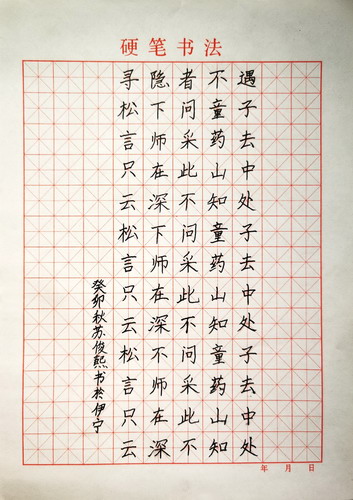 硬笔书法
寻隐者不遇
松下问童子
言师采药去
只在此山中
云深不知处
松下问童子
言师采药去
只在此山中
云深不知处
松不问童子
言师采药去
只在此山中
云深不知处
癸卯秋苏俊熙书於伊宁
年 月 日